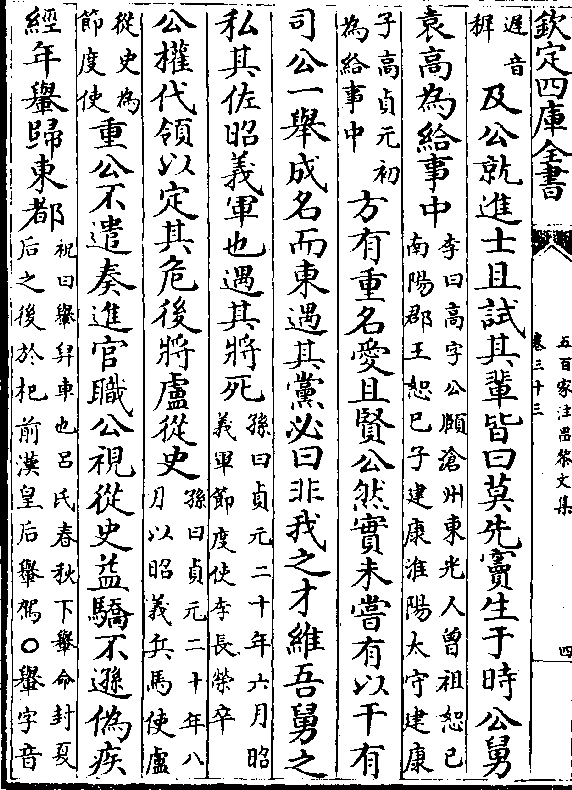 欽定四庫全書
五百家注昌黎文集
卷三十三
四
遲音
穉
及公就進士且試其輩皆曰莫先竇生于時公舅
袁高為給事中
李曰高字公頤滄州東光人曾祖恕已
南陽郡王恕已子建康淮陽太守建康
子高貞元初
為給事中
方有重名愛且賢公然實未嘗有以干有
司公一舉成名而東遇其黨必曰非我之才維吾舅之
私其佐昭義軍也遇其將死
孫曰貞元二十年六月昭
義軍節度使李長榮卒
公權代領以定其危後將盧從史
孫曰貞元二十年八
月以昭義兵馬使盧
從史為
節度使
重公不遣奏進官職公視從史益驕不遜偽疾
經年轝歸東都
祝曰轝舁車也吕氏春秋下轝命封夏
后之後於杞前漢皇后轝駕○轝字音